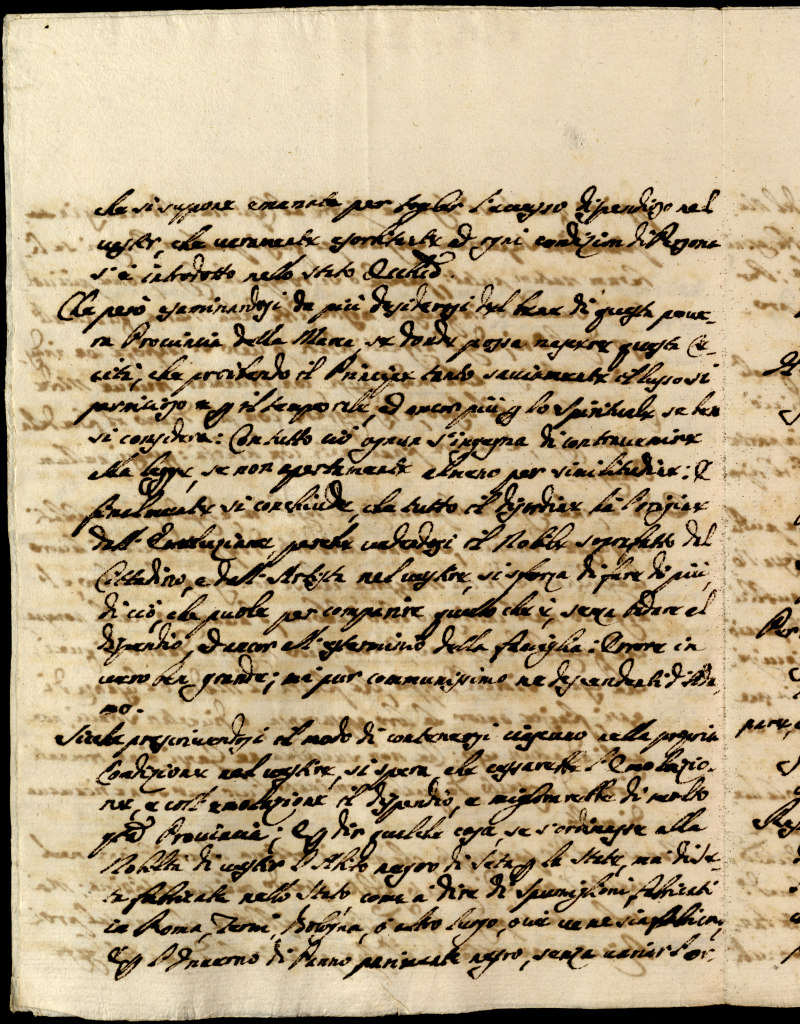 che si suppone emanata per toglier l'accesso dispendioso nel
vestir, che veramente esorbitante ad ogni condizion di Persona
s'è introdotto nello stato Eccles.co.
Che però esaminandosi da più desiderosi del bene di questa pove-
ra Provincia della Marca, se donde possa nascere questa Ce-
cità, che proibendo il Principe tanto saviamente il lusso sì
pernicioso e p il temporale, ed ancor più p lo spirituale se ben
si considera: Con tutto ciò ognun s'ingegna di contravenire
alla legge, se non apertamente almeno per similitudine: E
finalmente si conchiude, che tutto il disordine hà l'origine
dall'Emulazione, perche vedendosi il Nobile soprafatto dal
Cittadino, e dall'Artista nel vestire, si sforza di fare di più
di ciò, che puole per comparire quello che è, senza badare al
dispendio, ed ancor all'esterminio della famiglia: Errore in
vero ben grande; mà pur communissimo ne descendenti d'Ada-
mo.
Sicche prescrivendosi il modo di contenersi ciascuno nella propria
Condizione nel vestire, si spera, che cessarebbe l'Emulazio-
ne, e coll'emulazione il dispendio, e migliorarebbe di molto
q.sta Provincia; E p dir qualche cosa, se s'ordinasse alla
Nobiltà di vestir l'Abito negro di Seta p la State, mà di Se-
ta fabricata nello Stato come a dire di Spumiglioni fabricati
in Roma, Terni, Bologna, ò altro luogo, ove ve ne sia fabrica,
E p l'Inverno di Panno parimente negro, senza variar l'or-